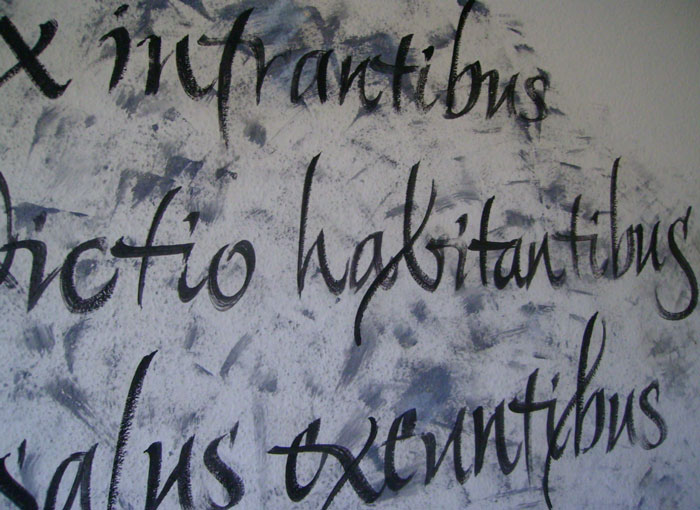 x intrantibus
dictio habitantibus
salus exeuntibus